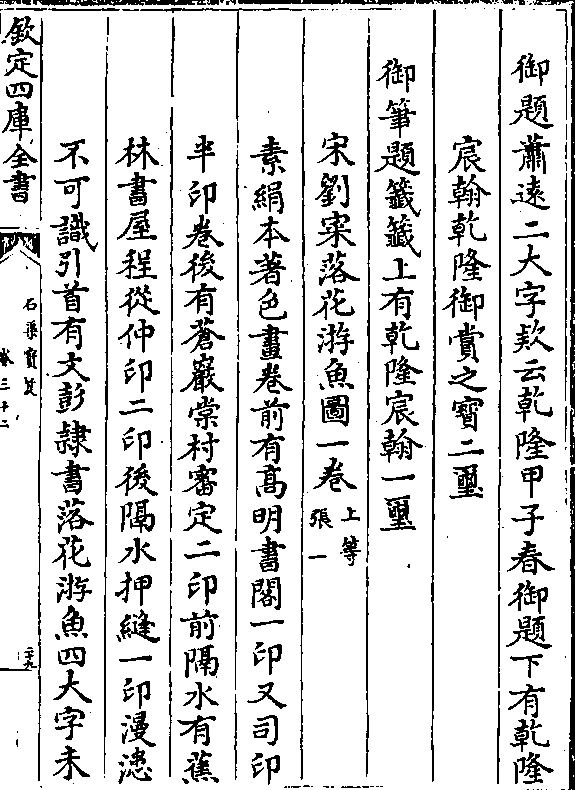 御題蕭逺二大字款云乾隆甲子春御題下有乾隆
宸翰乾隆御賞之寶二璽
御筆題籤籤上有乾隆宸翰一璽
宋劉寀落花游魚圖一卷 上等 張一
素絹本著色畫卷前有髙明書閣一印又司印
半印卷後有蒼巖棠村審定二印前隔水有蕉
林書屋程從仲印二印後隔水押縫一印漫漶
不可識引首有文彭隸書落花游魚四大字未
欽定四庫全書
石渠寳笈
卷三十二
二十九